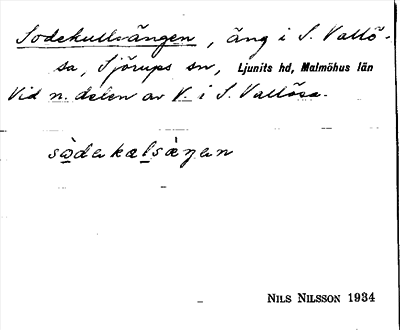 Sodekullsängen, äng i S. Vallö-
sa, Sjörups sn, Ljunits hd, Malmöhus län
Vid n. delen av V. i S. Vallösa.
sødekalsàŋen
NILS NILSSON 1934